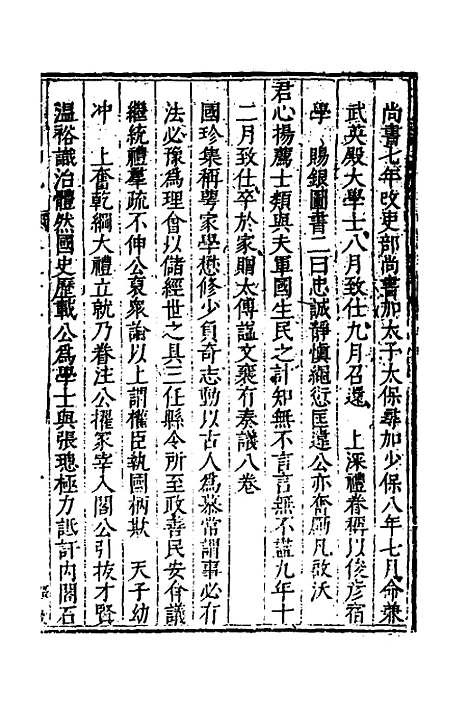 尚書七年改吏部尚書加太子太保尋加少保八年七月命兼
武英殿大學士八月致仕九月召還　上深禮眷稱以俊彥宿
學　賜銀圖書二曰忠誠靜慎繩愆匡違公亦奮勵凡啟沃
君心揚薦士類與夫軍國生民之計知無不言言無不盡九年十
二月致仕卒於家贈太傅謚文襄有奏議八卷
國珍集稱粵家學懋修少負奇志動以古人為慕常謂事必有
法必豫為理會以儲經世之具三任縣令所至政善民安會議
繼統禮羣疏不伸公裒衆論以上謂權臣執國柄欺　天子幼
冲　上奮乾綱大禮立就乃眷注公擢冢宰入閣公引拔才賢
溫裕識治體然國史歷載公為學士與張璁極力詆訐內閣石